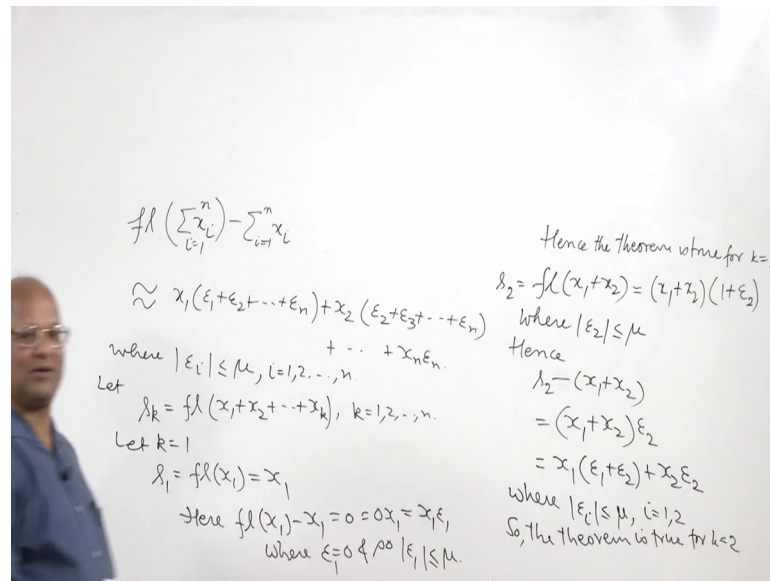 fl(∑_{i=1}^{n} x_i) - ∑_{i=1}^{n} x_i
≈ x_1(ε_1+ε_2+--+ε_n)+x_2(ε_2+ε_3+--+ε_n)
+ -- +x_nε_n.
where |ε_i|≤μ, i=1,2,--,n
Let
s_k = fl(x_1+x_2+--+x_k), k=1,2,--,n.
Let k=1
s_1 = fl(x_1) = x_1
Here fl(x_1)-x_1=0=0x_1=x_1ε_1
where ε_1=0 & so |ε_1|≤μ.
Hence the theorem is true for k=
s_2 = fl(x_1+x_2) = (x_1+x_2)(1+ε_2)
where |ε_2|≤μ
Hence
s_2-(x_1+x_2)
=(x_1+x_2)ε_2
=x_1(ε_1+ε_2)+x_2ε_2
where |ε_i|≤μ, i=1,2
So, the theorem is true for k=2